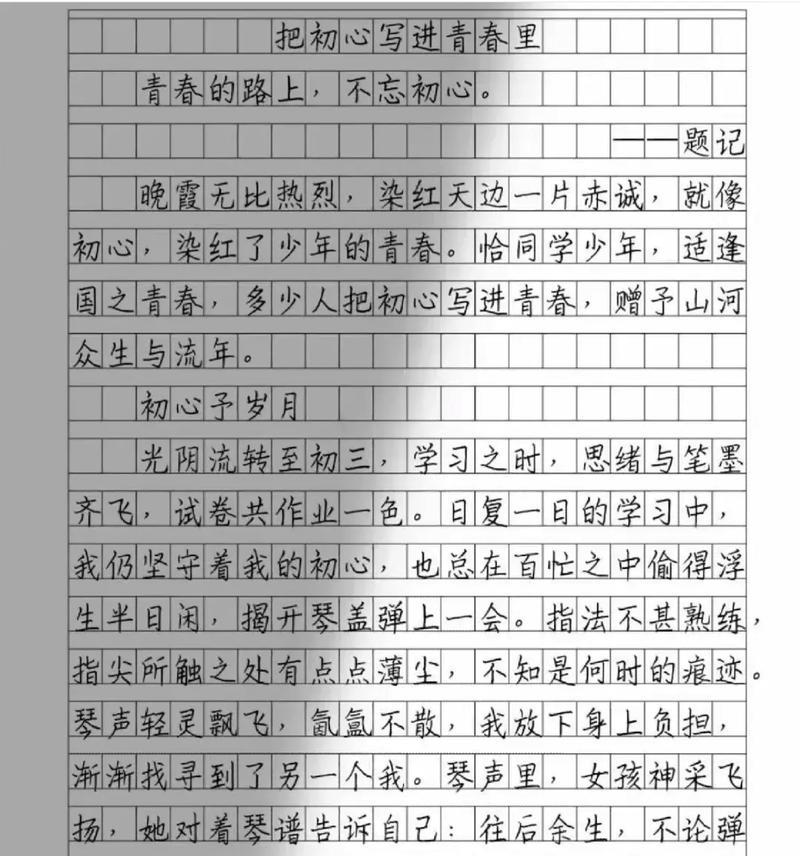 把初心写进青春里
青春的路上，不忘初心。
——题记
晚霞无比热烈，染红天边一片赤诚，就像
初心，染红了少年的青春。恰同学少年，适逢
国之青春，多少人把初心写进青春，赠予山河
众生与流年。
初心予岁月
光阴流转至初三，学习之时，思绪与笔墨
齐飞，试卷共作业一色。日复一日的学习中，
我仍坚守着我的初心，也总在百忙之中偷得浮
生半日闲，揭开琴盖弹上一会。指法不甚熟练，
指尖所触之处有点点薄尘，不知是何时的痕迹。
琴声轻灵飘飞，氤氲不散，我放下身上负担，
渐渐找寻到了另一个我。琴声里，女孩神采飞
扬，她对着琴谱告诉自己：往后余生，不论弹